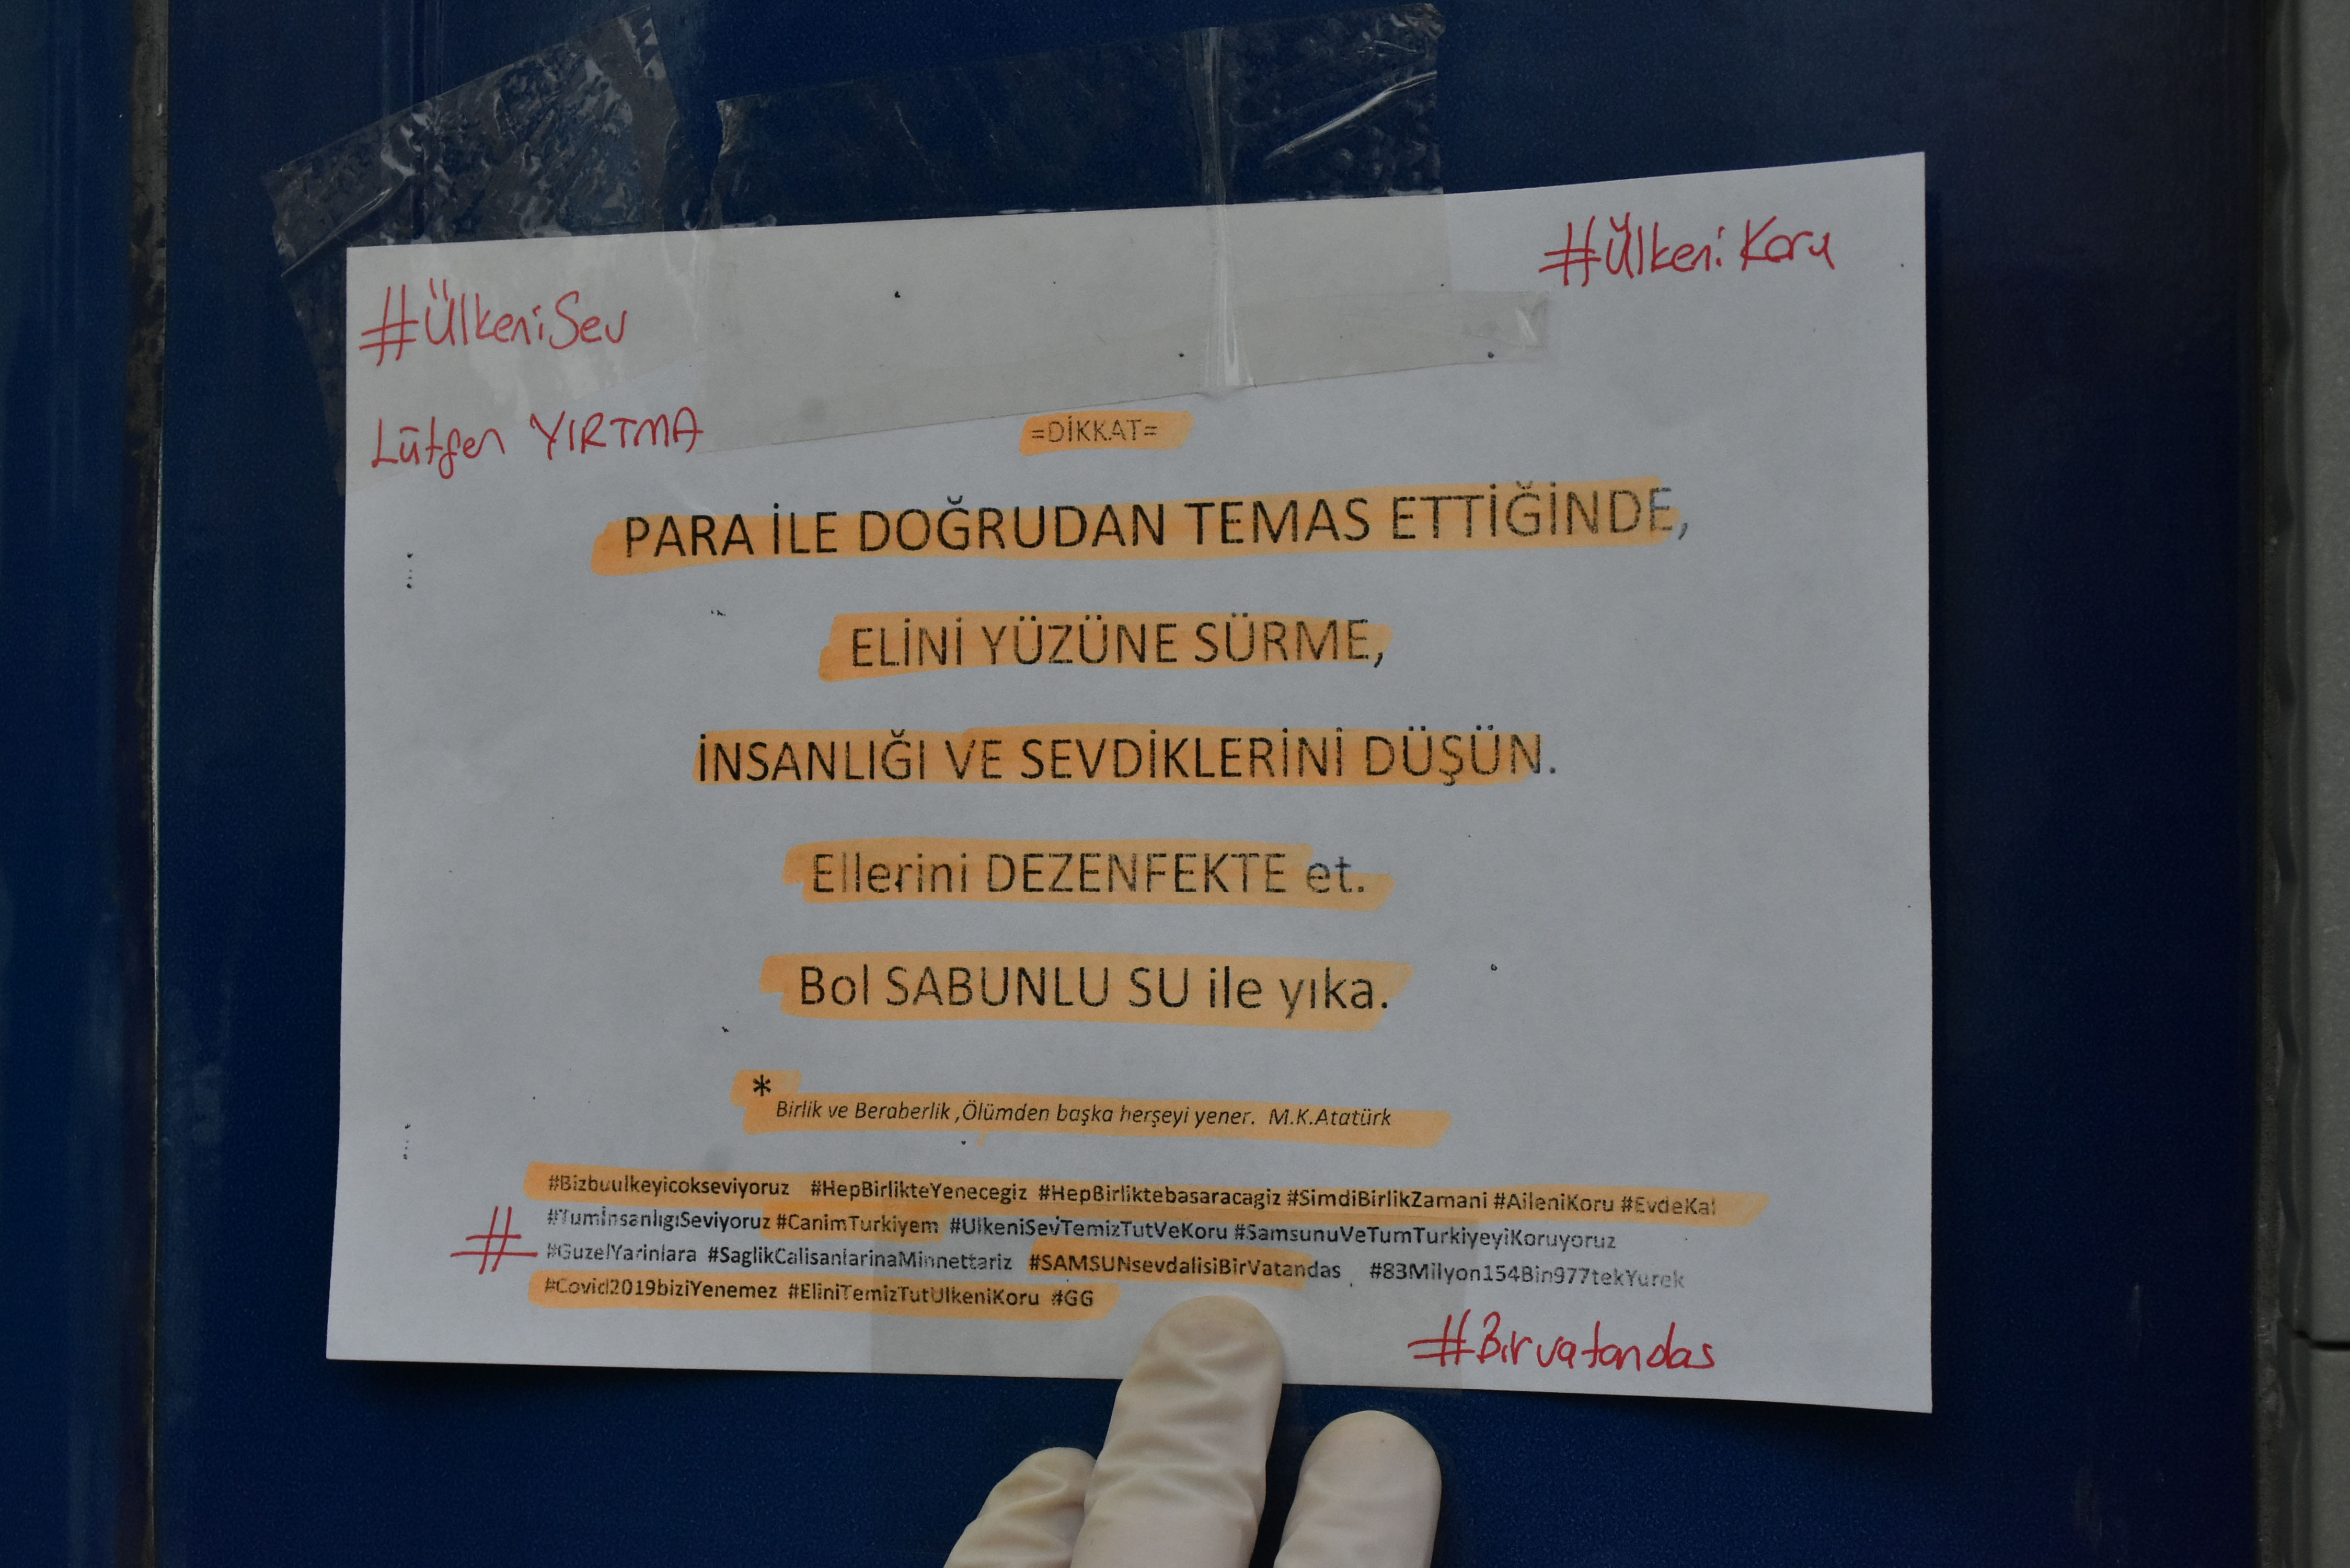 #ÜlkeniSev
#Ülkeni Koru
Lütfen YIRTMA
=DİKKAT=
PARA İLE DOĞRUDAN TEMAS ETTİĞİNDE,
ELİNİ YÜZÜNE SÜRME,
İNSANLIĞI VE SEVDİKLERİNİ DÜŞÜN.
Ellerini DEZENFEKTE et.
Bol SABUNLU SU ile yıka.
* Birlik ve Beraberlik ,Ölümden başka herşeyi yener. M.K.Atatürk
#Bizbuulkeyicokseviyoruz #HepBirlikteYenecegiz #HepBirliktebasaracagiz #SimdiBirlikZamani #AileniKoru #EvdeKal
#TumİnsanlıgıSeviyoruz #CanimTurkiyem #UlkeniSevTemizTutVeKoru #SamsunuVeTumTurkiyeyiKoruyoruz
#GuzelYarinlara #SaglikCalisanlarinaMinnettariz #SAMSUNsevdalisiBirVatandas #83Milyon154Bin977tekYurek
#Covid2019biziYenemez #EliniTemizTutUlkeniKoru #GG
#
#Birvatandas